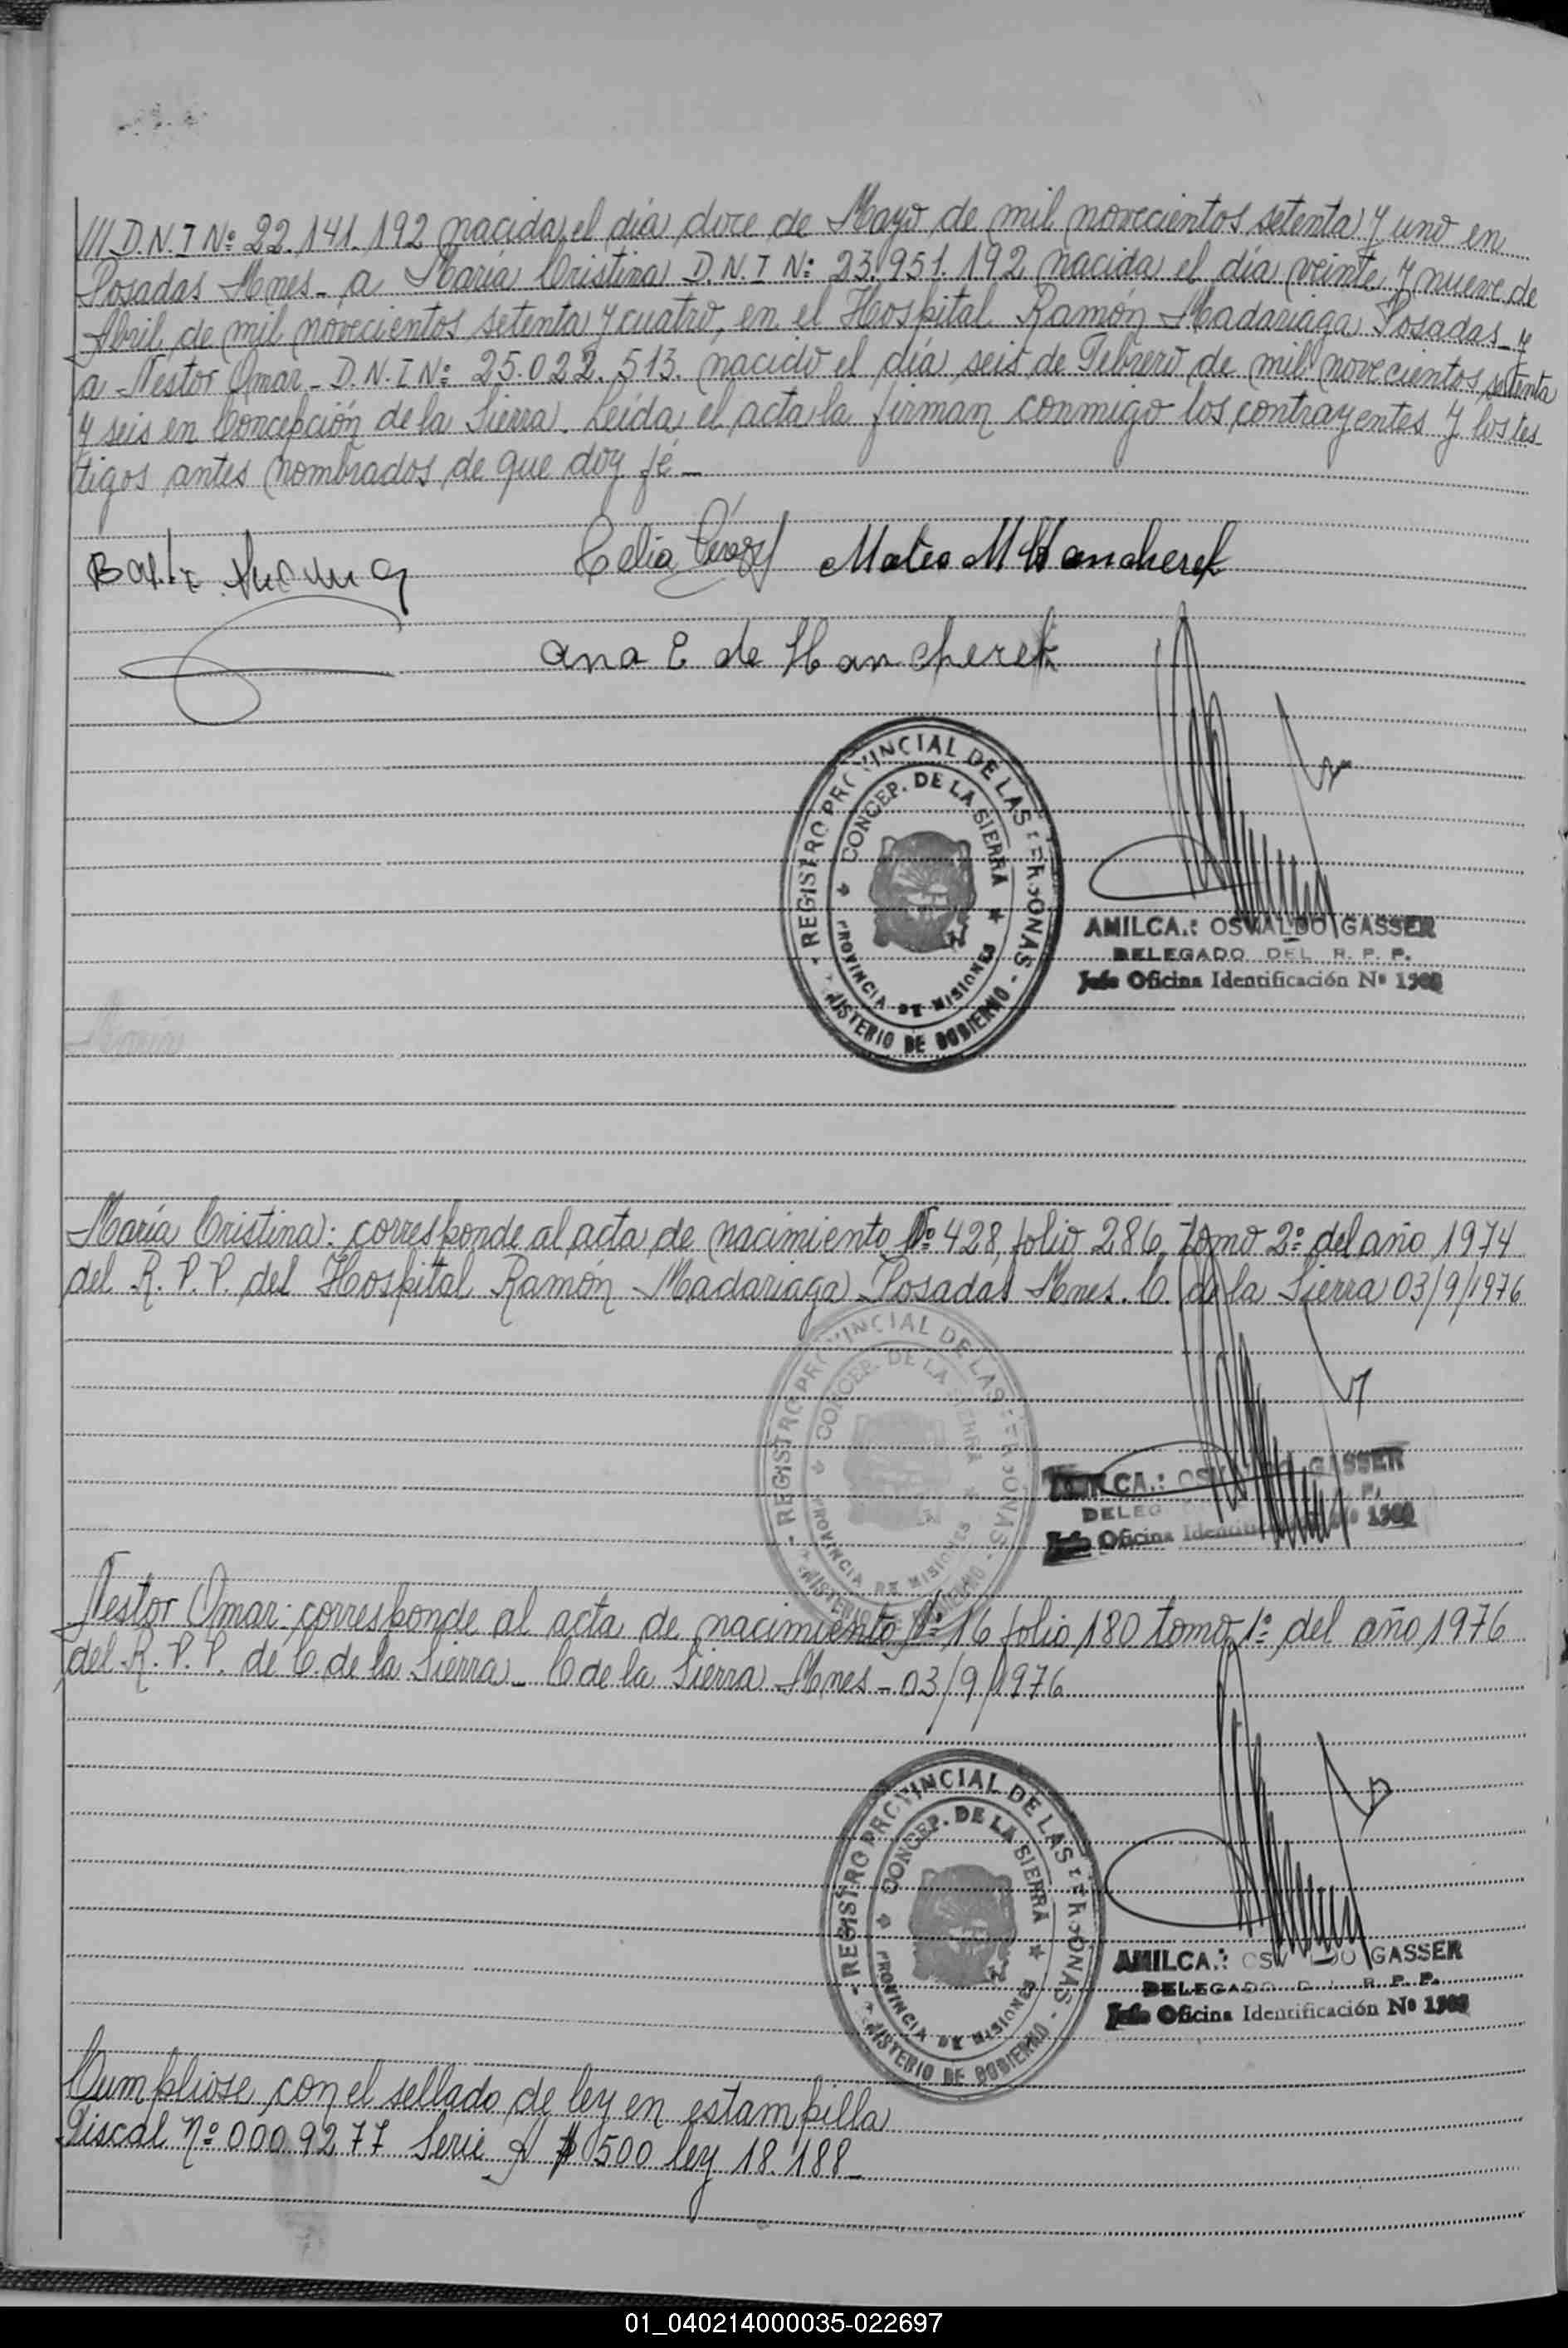 /// D.N.I Nº 22.141.192 nacida el día doce de Mayo de mil novecientos setenta y uno en
Posadas Mnes- a María Cristina D.N.I Nº 23.951.192 nacida el día veinte y nueve de
Abril de mil novecientos setenta y cuatro, en el Hospital Ramón Madariaga Posadas- y
a Nestor Omar- D.N.I Nº 25.022.513. nacido el día seis de Febrero de mil novecientos setenta
y seis en Concepción de la Sierra. Leída el acta la firman conmigo los contrayentes y los tes
tigos antes nombrados de que doy fé-
Celia Perez Mateo M Hancherek
Ana E de Hancherek
REGISTRO PROVINCIAL DE LAS PERSONAS
CONCEP. DE LA SIERRA
PROVINCIA DE MISIONES
MINISTERIO DE GOBIERNO
AMILCA.: OSVALDO GASSER
DELEGADO DEL R. P. P.
Jefe Oficina Identificación Nº
María Cristina: corresponde al acta de nacimiento Nº 428, folio 286, tomo 2º del año 1974
del R. P. P. del Hospital Ramón Madariaga Posadas Mnes. C. de la Sierra 03/9/1976
REGISTRO PROVINCIAL DE LAS PERSONAS
CONCEP. DE LA SIERRA
PROVINCIA DE MISIONES
CA.: OSV GASSER
DELEG
Jefe Oficina Identifi
Nestor Omar: corresponde al acta de nacimiento Nº 16 folio 180 tomo 1º del año 1976
del R. P. P. de C. de la Sierra- C de la Sierra Mnes- 03/9/1976
REGISTRO PROVINCIAL DE LAS PERSONAS
CONCEP. DE LA SIERRA
PROVINCIA DE MISIONES
MINISTERIO DE GOBIERNO
AMILCA.: OSV DO GASSER
DELEGADO D L R. P. P.
Jefe Oficina Identificación Nº
Cumpliose con el sellado de ley en estampilla
Fiscal Nº 0009277 Serie A $ 500 ley 18.188-
01_040214000035-022697